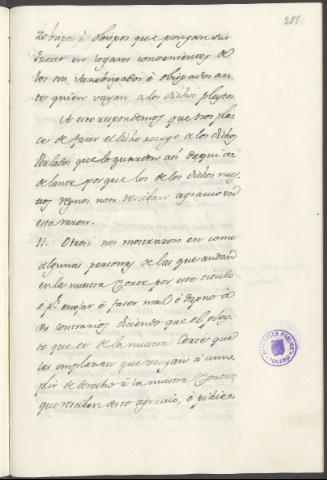 285.
zobispos è obispos que pongan sus
Jueces en logares convenientes de
los sus Arzobispados è obispados an-
te quien vayan a los dichos pleytos.
A esto respondemos que nos pla-
ce de facer el dicho ruego a los dichos
Perlados que lo guarden asi daqui ade-
delante porque los de los dichos nues-
tros regnos non resciban agravio en
esta razon.
11. Otrosi nos mostraron en como
algunas personas de las que andan
en la nuestra Corte por este titulo
è pr. enojar è facer mal è dapno à
sus contrarios diciendo que el pley-
to que es de la nuestra Corte que
los emplazan que vengan à cum-
plir de derecho à la nuestra Corte,
que resciben desto agravio, è pidie-
BIBLIOTECA PUBLICA
TOLEDO